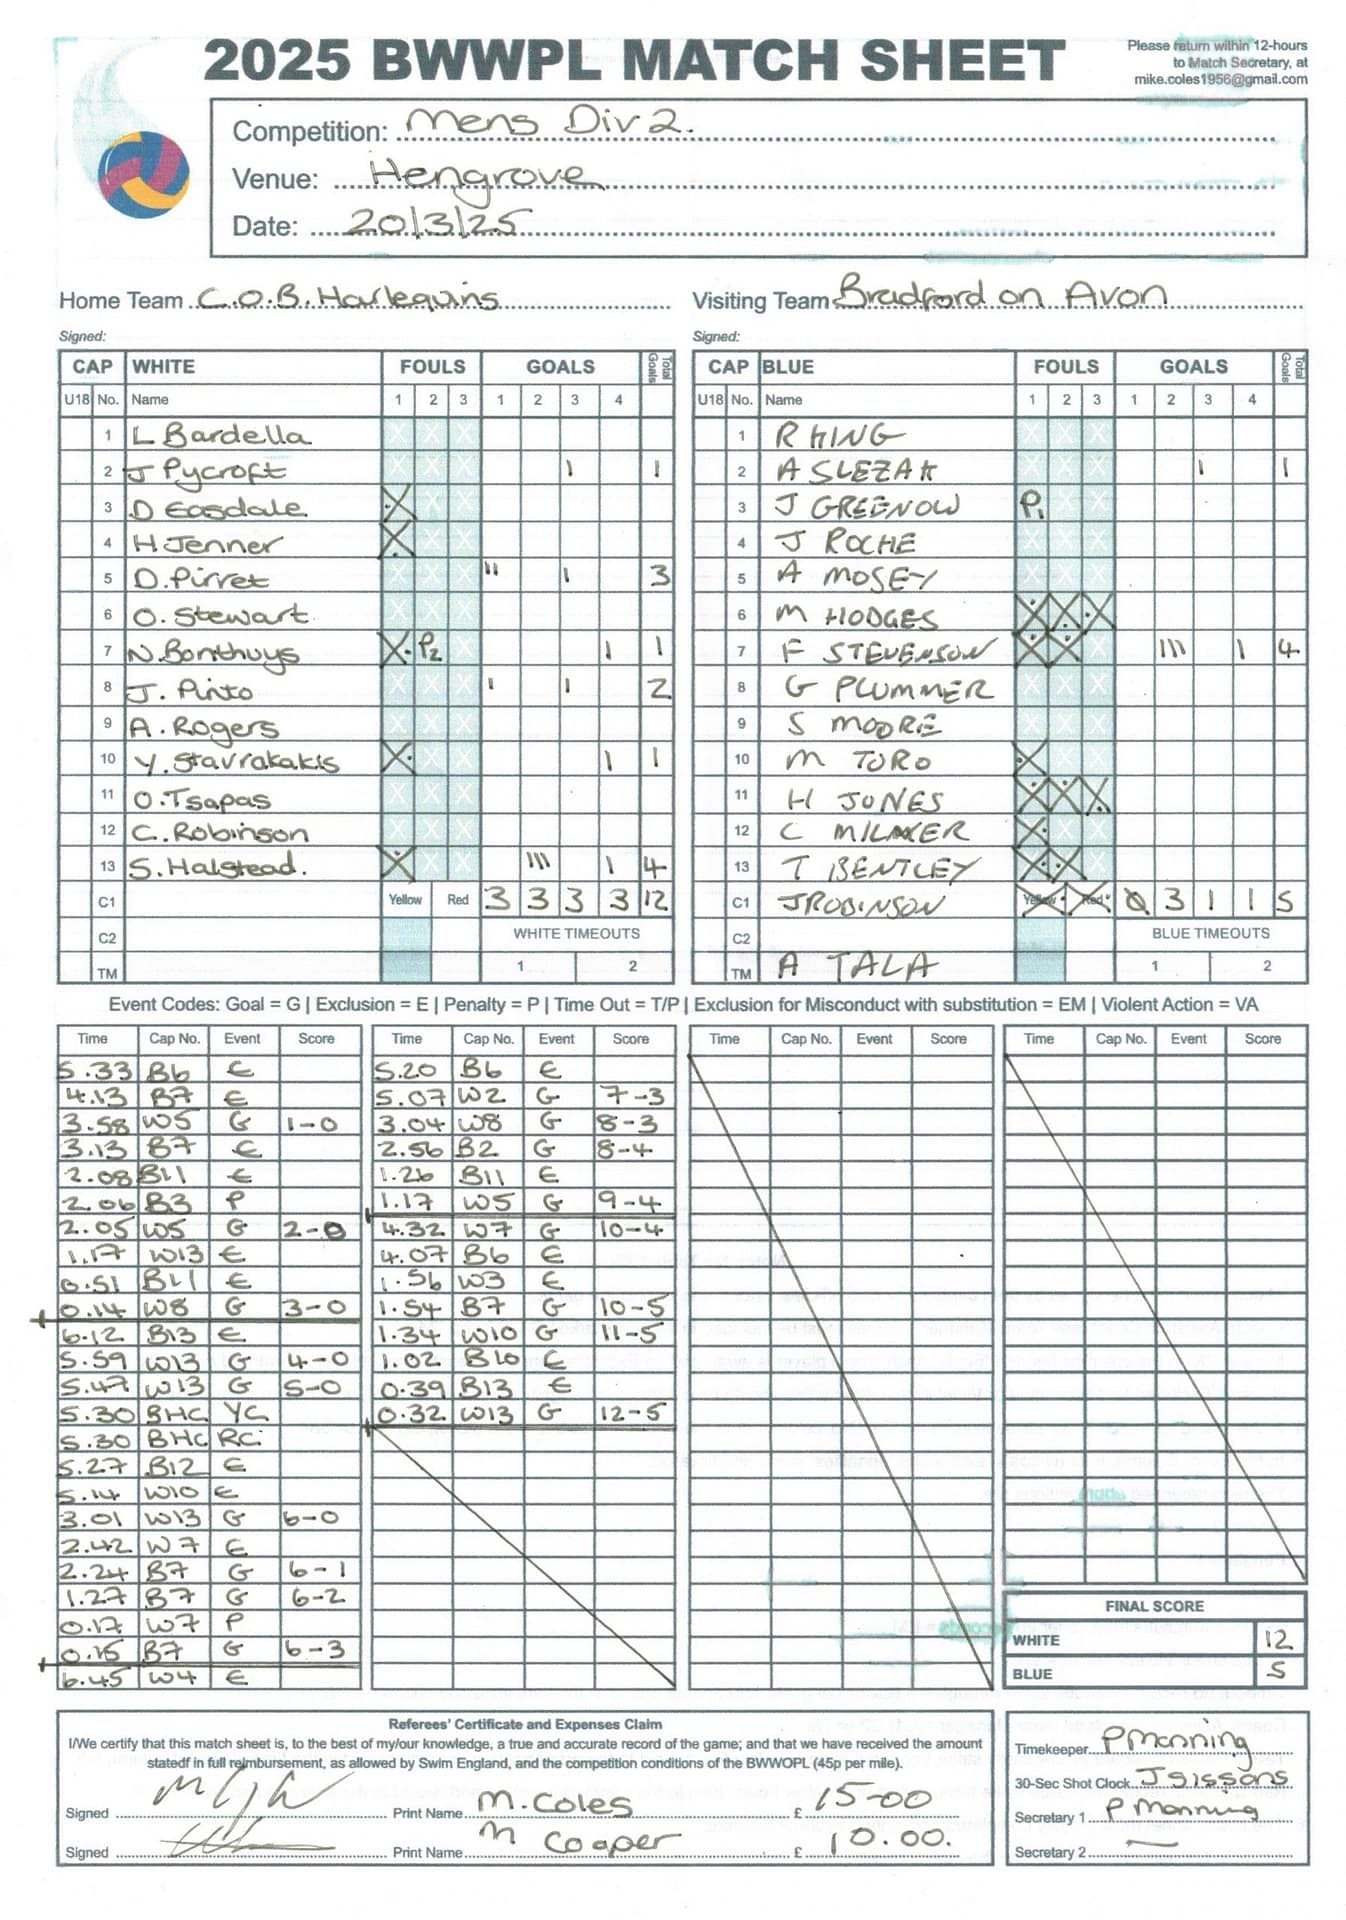 2025 BWWPL MATCH SHEET
Please return within 12-hours
to Match Secretary, at
mike.coles1956@gmail.com
Competition: Mens Div 2.
Venue: Hengrove
Date: 20/3/25
Home Team C.O.B. Harlequins
Visiting Team Bradford on Avon
Signed:
Signed:
CAP WHITE FOULS GOALS Total Goals
U18 No. Name 1 2 3 1 2 3 4
1 L Bardella
2 J Pycroft 1 1
3 D Easdale X
4 H Jenner X
5 D. Pirret 11 1 3
6 O. Stewart
7 N. Bonthuys X P2 1 1
8 J. Pinto 1 1 2
9 A. Rogers
10 Y. Stavrakakis X 1 1
11 O. Tsapas
12 C. Robinson
13 S. Halstead. X 111 1 4
C1 Yellow Red 3 3 3 3 12
C2 WHITE TIMEOUTS
TM 1 2
CAP BLUE FOULS GOALS Total Goals
U18 No. Name 1 2 3 1 2 3 4
1 R KING
2 A SLEZAK 1 1
3 J GREENOW P1
4 J ROCHE
5 A MOSEY
6 M HODGES X X X
7 F STEVENSON X X 111 1 4
8 G PLUMMER
9 S MOORE
10 M TORO X
11 H JONES X X X
12 C MILNER X
13 T BENTLEY X X
C1 J ROBINSON Yellow Red 0 3 1 1 5
C2 BLUE TIMEOUTS
TM A TALA 1 2
Event Codes: Goal = G | Exclusion = E | Penalty = P | Time Out = T/P | Exclusion for Misconduct with substitution = EM | Violent Action = VA
Time Cap No. Event Score
5.33 B6 E
4.13 B7 E
3.58 W5 G 1-0
3.13 B7 E
2.08 B11 E
2.06 B3 P
2.05 W5 G 2-0
1.17 W13 E
0.51 B11 E
0.14 W8 G 3-0
6.12 B13 E
5.59 W13 G 4-0
5.47 W13 G 5-0
5.30 BHC YC
5.30 BHC RC
5.27 B12 E
5.14 W10 E
3.01 W13 G 6-0
2.42 W7 E
2.24 B7 G 6-1
1.27 B7 G 6-2
0.17 W7 P
0.15 B7 G 6-3
6.45 W4 E
Time Cap No. Event Score
5.20 B6 E
5.07 W2 G 7-3
3.04 W8 G 8-3
2.56 B2 G 8-4
1.26 B11 E
1.17 W5 G 9-4
4.32 W7 G 10-4
4.07 B6 E
1.56 W3 E
1.54 B7 G 10-5
1.34 W10 G 11-5
1.02 B10 E
0.39 B13 E
0.32 W13 G 12-5
Time Cap No. Event Score
Time Cap No. Event Score
FINAL SCORE
WHITE 12
BLUE 5
Referees' Certificate and Expenses Claim
I/We certify that this match sheet is, to the best of my/our knowledge, a true and accurate record of the game; and that we have received the amount
statedf in full reimbursement, as allowed by Swim England, and the competition conditions of the BWWOPL (45p per mile).
Signed Print Name M. Coles £ 15-00
Signed Print Name M Cooper £ 10.00.
Timekeeper P Manning
30-Sec Shot Clock J Sissons
Secretary 1 P Manning
Secretary 2 —